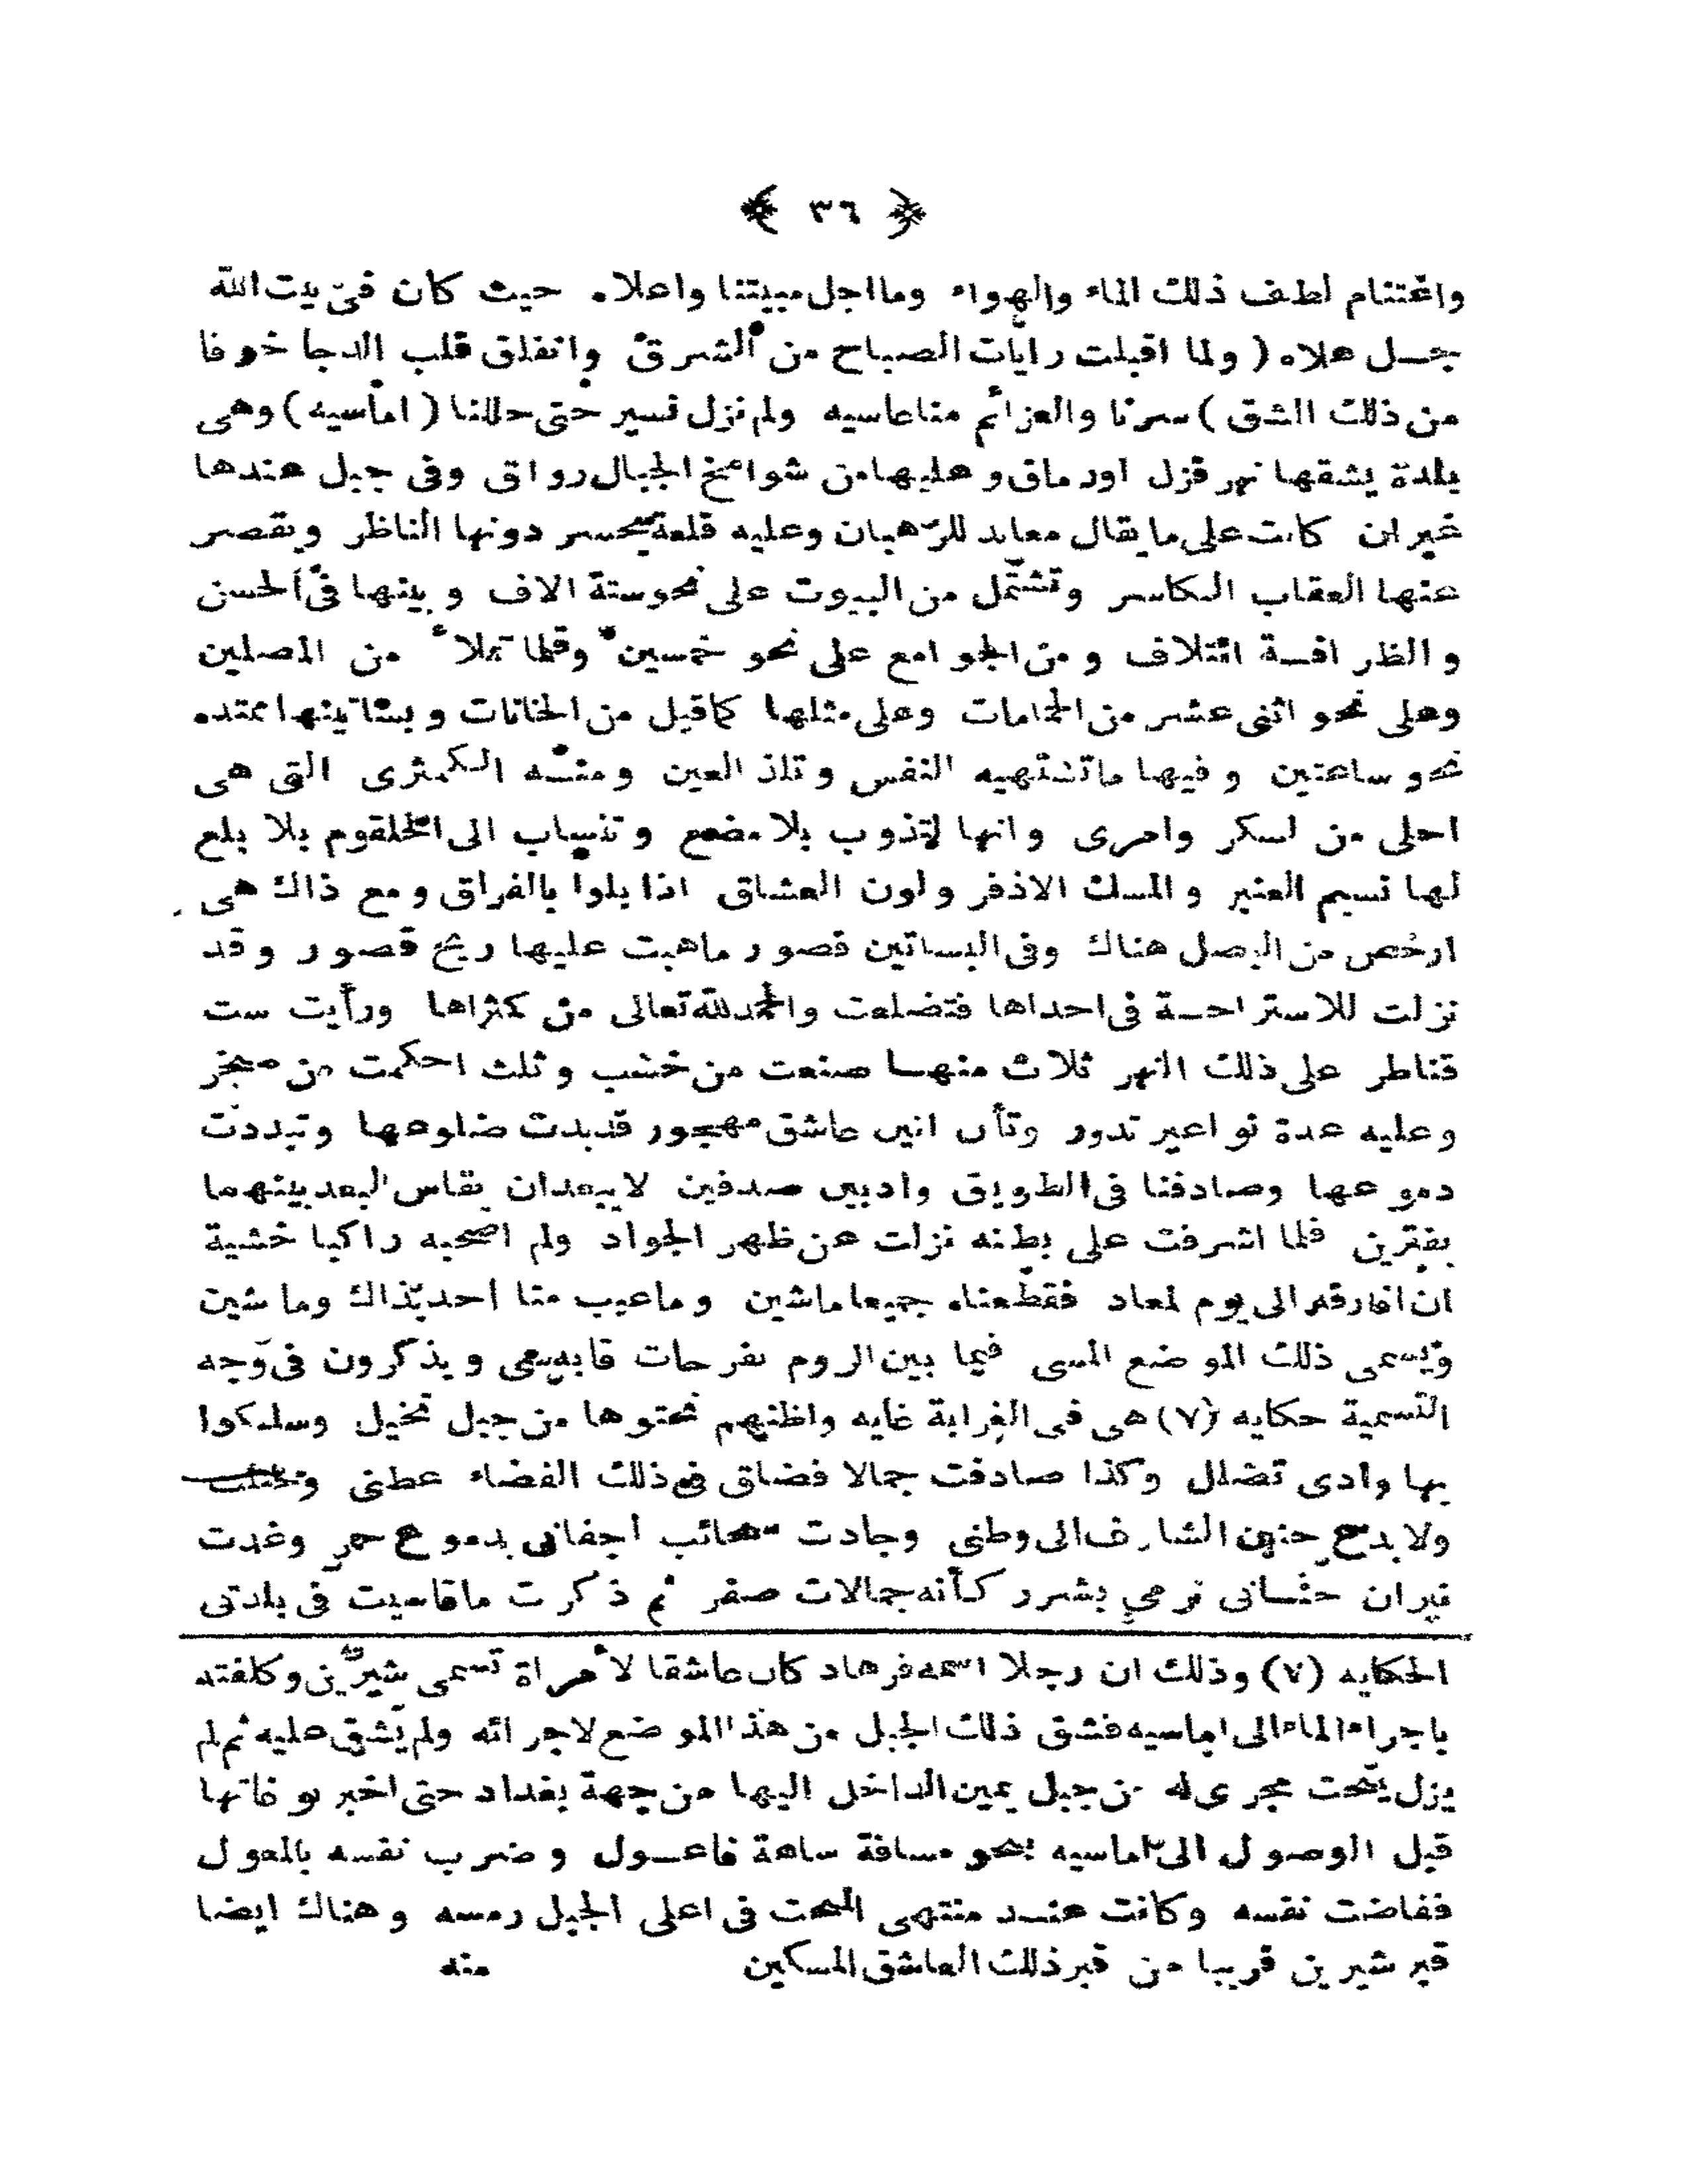 ﴿ ٣٦ ﴾
واغتنام لطف ذلك الماء والهواء وما اجل مبيتنا واعلاه حيث كان في بيت الله
جل علاه ( ولما اقبلت رايات الصباح من الشرق وانفلق قلب الدجا خوفا
من ذلك الشق ) سرنا والعزائم مناعاسيه ولم نزل نسير حتى حللنا ( اماسيه ) وهي
بلدة يشقها نهر قزل اورماق وعليها من شوامخ الجبال رواق وفى جبل عندها
غيران كانت على ما يقال معابد للرهبان وعليه قلعة يحسر دونها الناظر ويقصر
عنها العقاب الكاسر وتشتمل من البيوت على نحوستة الاف وبينها فى الحسن
والظرافة ائتلاف ومن الجوامع على نحو خمسين وقلما تملأ من المصلين
وعلى نحو اثنى عشر من الحمامات وعلى مثلها كما قيل من الخانات وبساتينها ممتده
نحو ساعتين وفيها ما تشتهيه النفس وتلذ العين ومنه الكمثرى التى هى
احلى من لسكر وامرى وانها لتذوب بلا مضغ وتنساب الى الحلقوم بلا بلع
لها نسيم العنبر والمسك الاذفر ولون العشاق اذا بلوا بالفراق ومع ذاك هى
ارخص من البصل هناك وفى البساتين قصور ماهبت عليها ريح قصور وقد
نزلت للاستراحة فى احداها فتضلعت والحمد لله تعالى من كمثراها ورأيت ست
قناطر على ذلك النهر ثلاث منها صنعت من خشب وثلث احكمت من صخر
وعليه عدة نواعير تدور وتأن انين عاشق مهجور قدبدت ضلوعها وتبددت
دموعها وصادفنا فى الطريق وادبين صدفين لا يبعدان يقاس البعد بينهما
بفترين فلما اشرفت على بطنه نزلت عن ظهر الجواد ولم اصحبه راكبا خشية
ان افارقه الى يوم لمعاد فقطعناه جميعا ماشين وماعيب منا احد بذاك وما شين
ويسمى ذلك الموضع المسى فيما بين الروم بفرحات قايه سى ويذكرون فى وجه
التسمية حكايه (٧) هى فى الغرابة غايه واظنهم نحتوها من جبل تخيل وسلكوا
بها وادى تضلل وكذا صادفت جمالا فضاق فى ذلك الفضاء عطنى
ولا بدع حنين الشارف الى وطنى وجادت سحائب اجفانى بدموع حمر وغدت
نيران حشانى ترمى بشرر كأنه جمالات صفر ثم ذكرت ماقاسيت فى بلدتى
الحكايه (٧) وذلك ان رجلا اسمه فرهاد كان عاشقا لأمراة تسمى شيرين وكلفته
باجراء الماء الى اماسيه فشق ذلك الجبل من هذا الموضع لاجرائه ولم يشق عليه ثم لم
يزل ينحت مجرى له من جبل يمين الداخل اليها من جهة بغداد حتى اخبر بوفاتها
قبل الوصول الى اماسيه بنحو مسافة ساعة فاعول وضرب نفسه بالمعول
ففاضت نفسه وكانت عند منتهى النحت فى اعلى الجبل رمسه وهناك ايضا
قبر شيرين قريبا من قبر ذلك العاشق المسكين منه